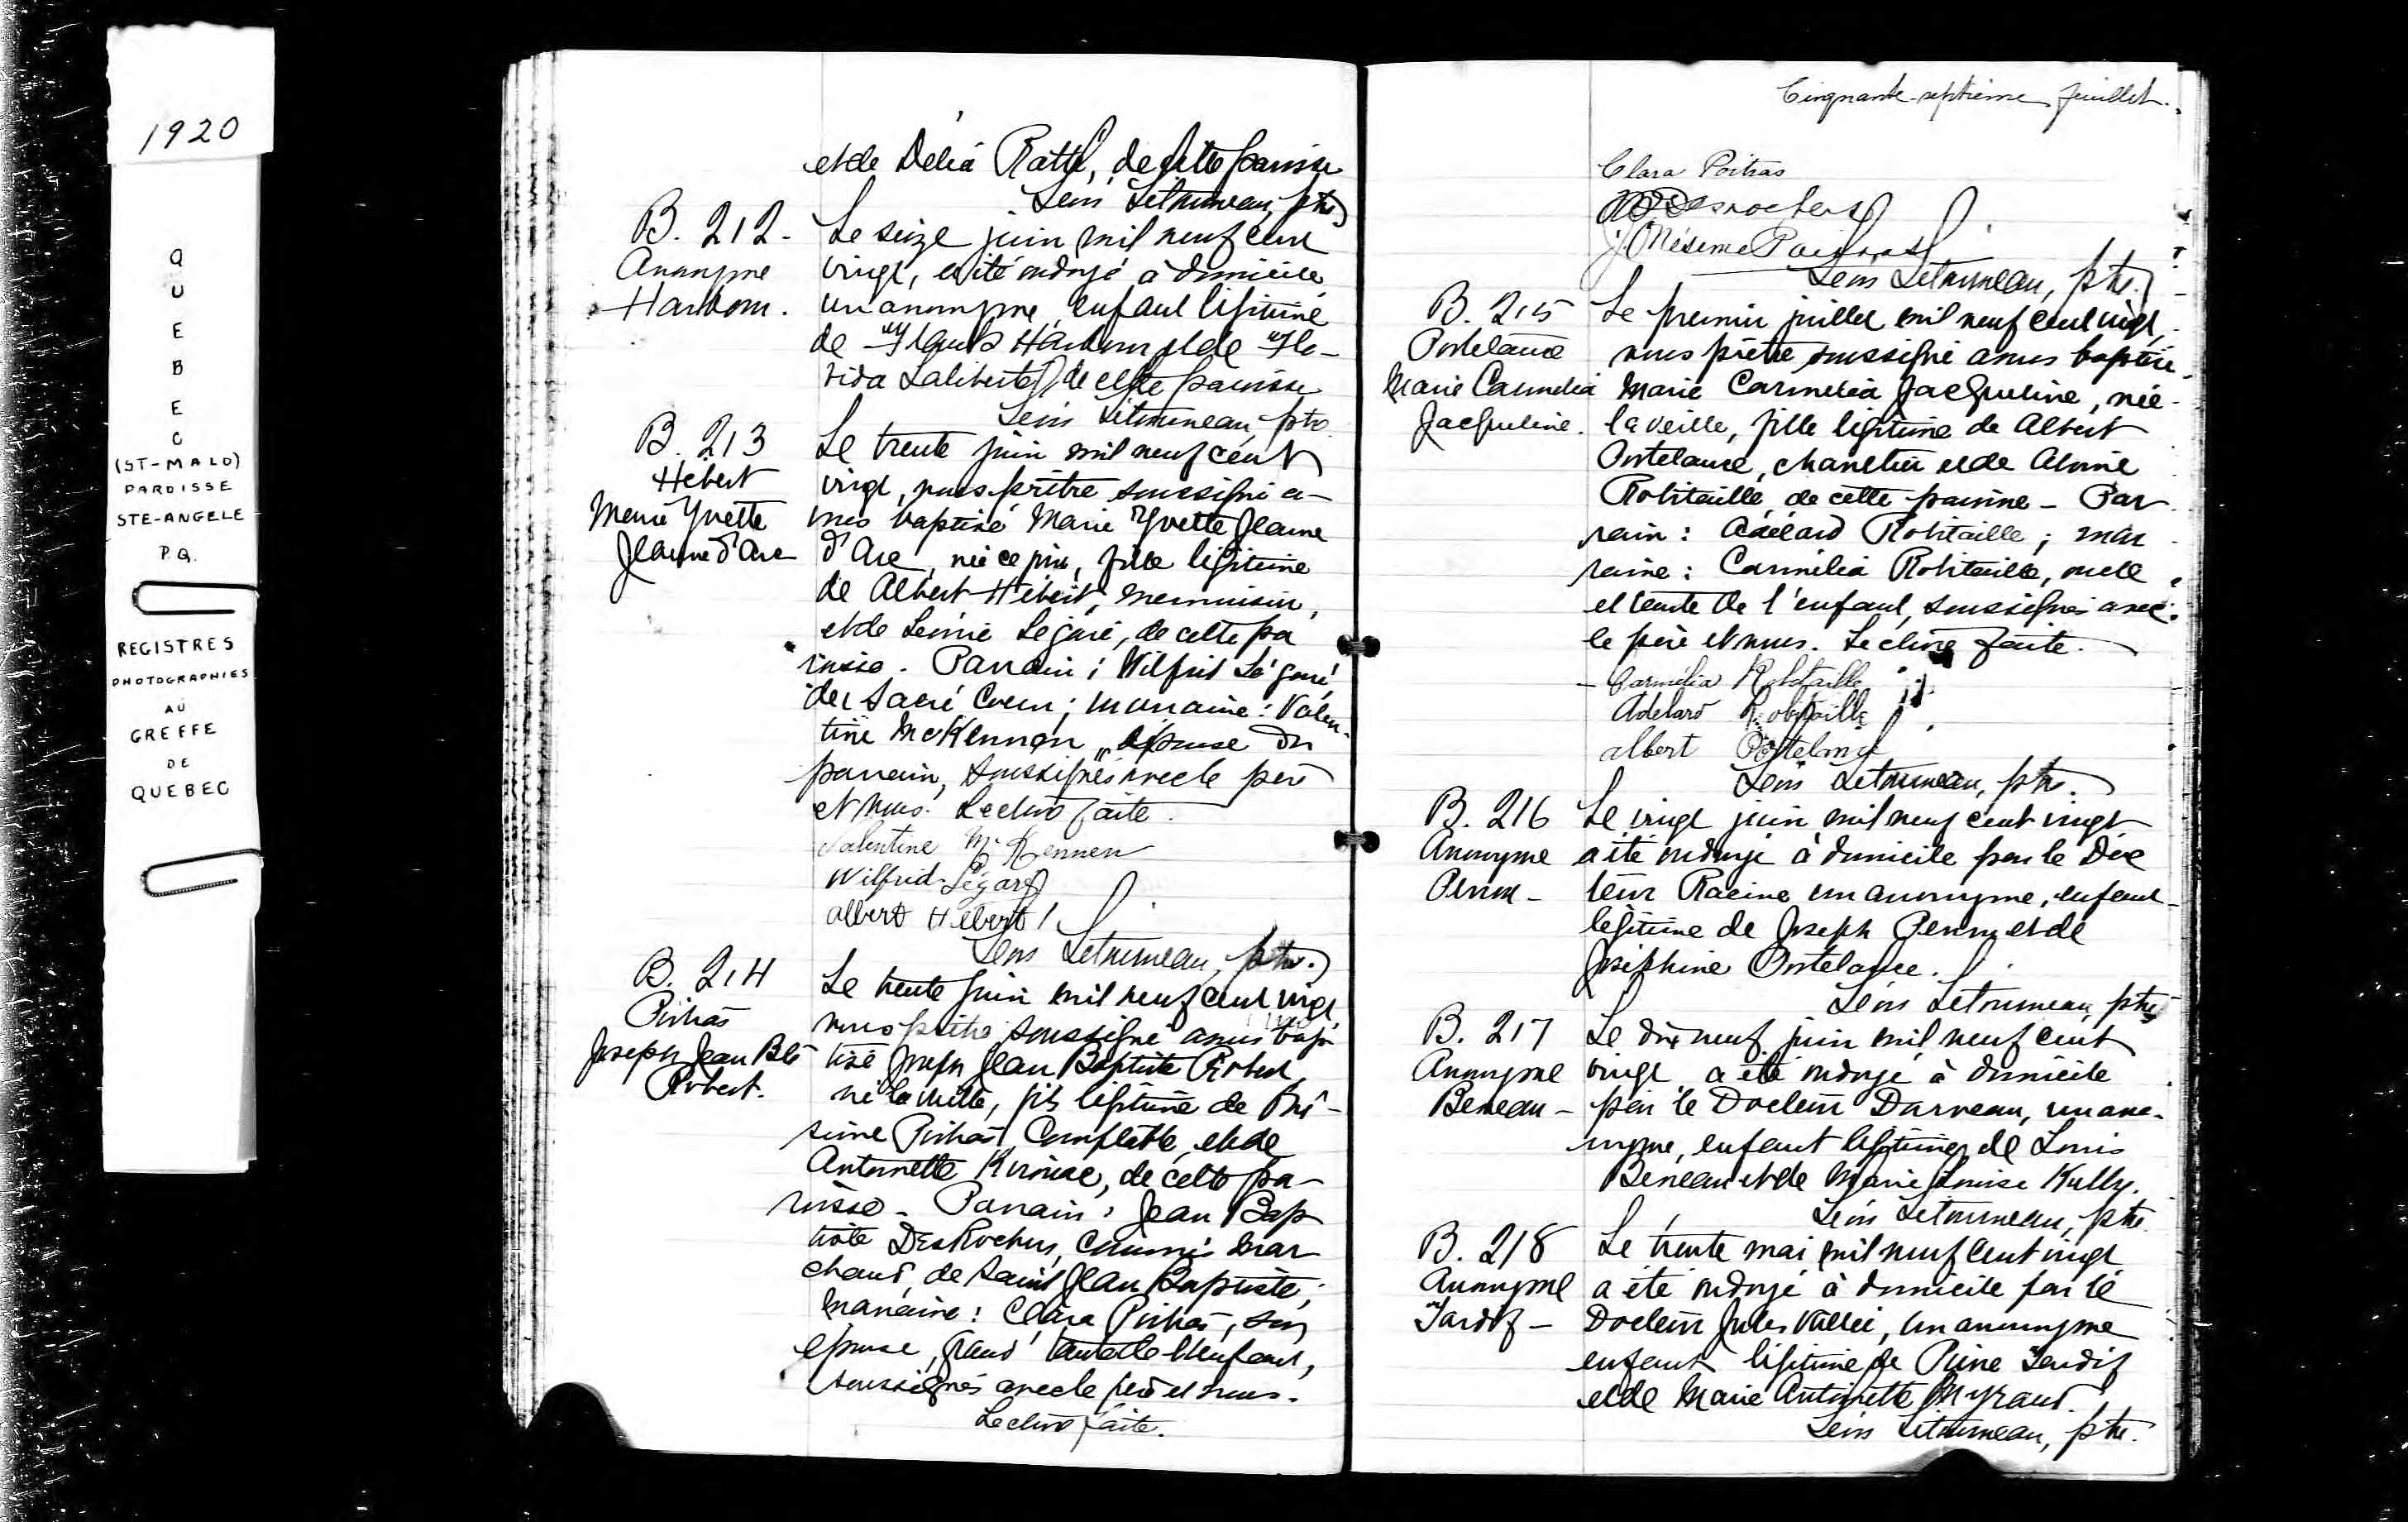 1920
QUEBEC
(ST-MALO)
PAROISSE
STE-ANGELE
P.Q.
REGISTRES
PHOTOGRAPHIES
AU
GREFFE
DE
QUEBEC
et de Délia Ratté, de cette paroisse
Léus Létourneau, ptre
B. 212.
Anonyme
Harbour.
Le seize juin mil neuf cent
vingt, a été ondoyé à domicile
un anonyme, enfant légitime
de Harbour et de Flo-
rida Laliberté, de cette paroisse
Léus Létourneau, ptre
B. 213
Hébert
Marie Yvette
Jeanne d'Arc
Le trente juin mil neuf cent
vingt, nous prêtre soussigné a-
vons baptisé Marie Yvette Jeanne
d'Arc, née ce jour, fille légitime
de Albert Hébert, menuisier,
et de Léonie Légaré, de cette pa
roisse. Parrain : Wilfrid Légaré
du Sacré Coeur; marraine : Valen-
tine McKennen, épouse du
parrain, soussignés avec le père
et nous. Lecture faite.
Valentine McKennen
Wilfrid Légaré
Albert Hébert
Léus Létourneau, ptre.
B. 214
Poitras
Joseph Jean Bte
Robert.
Le trente juin mil neuf cent vingt
nous prêtre soussigné avons bap
tisé Joseph Jean Baptiste Robert
né la veille, fils légitime de
Poitras, Comptable, et de
Antoinette Kirouac, de cette pa-
roisse - Parrain : Jean Bap
tiste DesRochers, Commis mar
chand, de Saint Jean Baptiste;
marraine : Clara Poitras, son
épouse, grand'tante de l'enfant,
soussignés avec le père et nous.
Lecture faite.
Cinquante-septième feuillet.
Clara Poitras
Desrochers
J. Onésime Poitras
Léus Létourneau, ptre.
B. 215
Portelance
Marie Carmelia
Jacqueline.
Le premier juillet mil neuf cent vingt,
nous prêtre soussigné avons baptisé
Marie Carmelia Jacqueline, née
la veille, fille légitime de Albert
Portelance, charretier et de
Robitaille, de cette paroisse - Par
rain : Adélard Robitaille; mar
raine : Carmélia Robitaille, oncle
et tante de l'enfant, soussignés avec
le père et nous. Lecture faite.
Carmélia Robitaille
Adélard Robitaille
Albert Portelance
Léus Létourneau, ptre.
B. 216
Anonyme
Perron -
Le vingt juin mil neuf cent vingt
a été ondoyé à domicile par le Doc
teur Racine un anonyme, enfant
légitime de Joseph Perron et de
Joséphine Portelance.
Léus Létourneau, ptre
B. 217
Anonyme
Beneau -
Le dix neuf juin mil neuf cent
vingt a été ondoyé à domicile
par le Docteur Darveau, un ano-
nyme, enfant légitime de Louis
Beneau et de Marie Louise Kully.
Léus Létourneau, ptre.
B. 218
Anonyme
Tardif -
Le trente mai mil neuf cent vingt
a été ondoyé à domicile par le
Docteur Jules Vallée, un anonyme
enfant légitime de Tardif
et de Marie Antoinette Myrand.
Léus Létourneau, ptre.